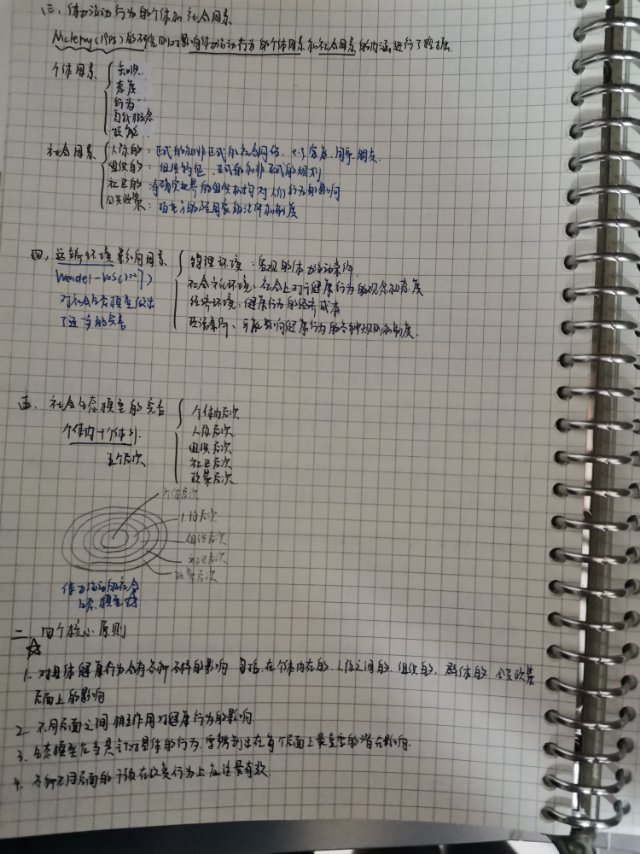 (三、体力活动行为的个体和社会因素
Mcleroy(1988)的研究则对影响体力活动行为的个体因素和社会因素的内涵进行了挖掘.
个体因素
知识
态度
行为
自我概念
技能
社会因素
人际的：正式的和非正式的社会网络, e.g. 家庭、同事、朋友
组织的：组织特征、正式的和非正式的规则
社区的：有确定边界的组织机构对人们行为的影响
公共政策：地方的和国家的法律和制度
四、运动环境影响因素
Wendel-Vos(2007)
对社会生态模型做出
了适当的完善
物理环境：客观的体力活动条件
社会文化环境：社会上对于健康行为的观念和态度
经济环境：健康行为的经济成本
政治条件：可能影响健康行为的各种规则和制度.
五、社会生态模型的完善
个体内→个体外.
五个层次
个体内层次
人际层次
组织层次
社区层次
政策层次.
个体层次
人际层次
组织层次
社区层次
政策层次
体力活动的社会
生态模型
二 四个核心原则
1. 对具体健康行为会有多种不同的影响 包括, 在个体内在的、人际之间的、组织的、群体的、公共政策
层面上的影响
2. 不同层面之间相互作用对健康行为的影响
3. 生态模型应当具针对具体的行为, 要识别出在每个层面上最重要的潜在影响.
4. 多种不同层面的干预在改变行为上应该最有效.